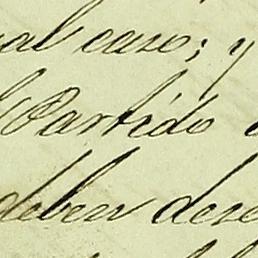 al caso; y
Partido
deben dese